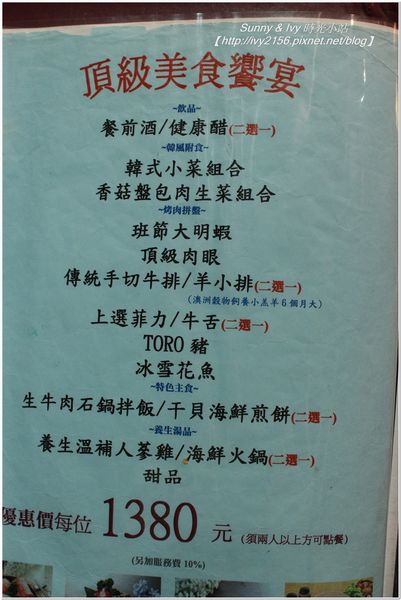 Sunny & Ivy 時光小站
【http://ivy2156.pixnet.net/blog】
頂級美食饗宴
~飲品~
餐前酒/健康醋(二選一)
~韓風附食~
韓式小菜組合
香菇盤包肉生菜組合
~烤肉拼盤~
班節大明蝦
頂級肉眼
傳統手切牛排/羊小排(二選一)
(澳洲穀物飼養小羔羊6個月大)
上選菲力/牛舌(二選一)
TORO豬
冰雪花魚
~特色主食~
生牛肉石鍋拌飯/干貝海鮮煎餅(二選一)
~養生湯品~
養生溫補人蔘雞/海鮮火鍋(二選一)
甜品
優惠價每位 1380 元 (須兩人以上方可點餐)
(另加服務費10%)